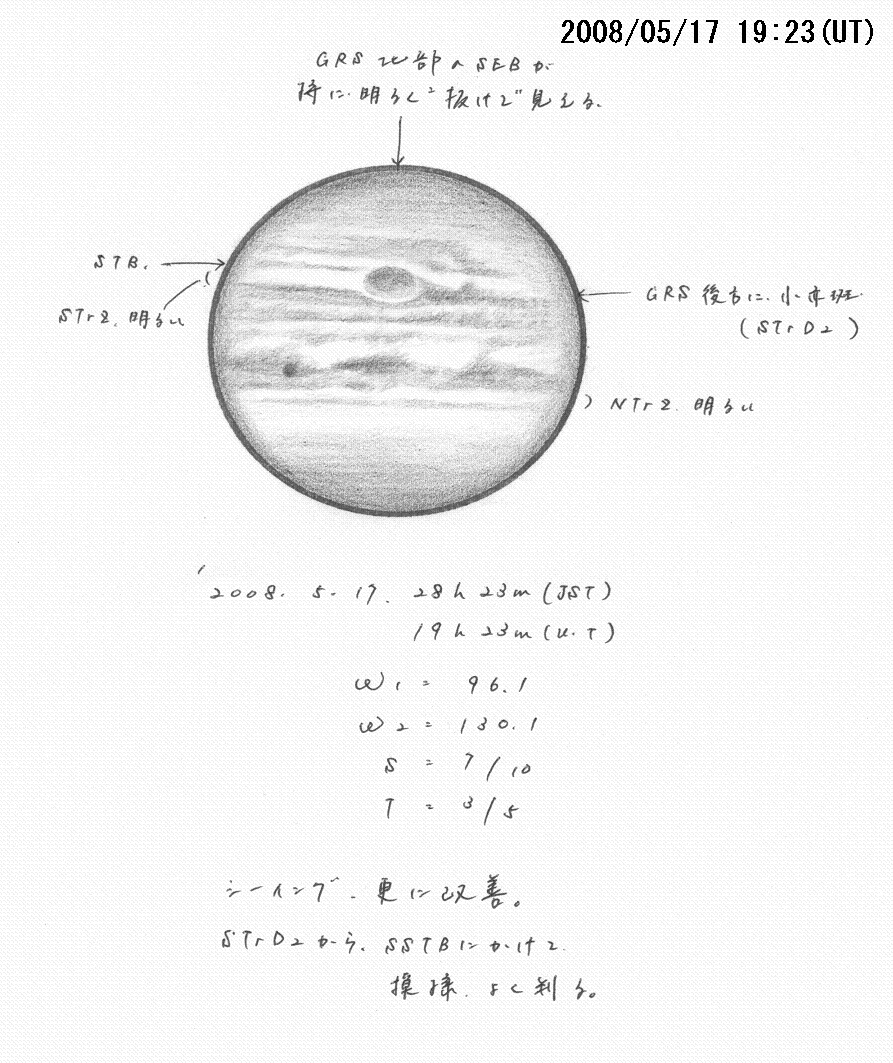 2008/05/17 19:23(UT)
GRS北部のSEBが
時に明るく"抜けて"見える.
STB.
STrZ. 明るい
GRS 後方に. 小赤斑.
(STrD2)
NTrZ. 明るい
2008. 5. 17. 28h 23m (JST)
19h 23m (U.T)
ω1 = 96.1
ω2 = 130.1
S = 7/10
T = 3/5
シーイング. 更に改善。
STrD2から. SSTBにかけて.
模様. よく判る。